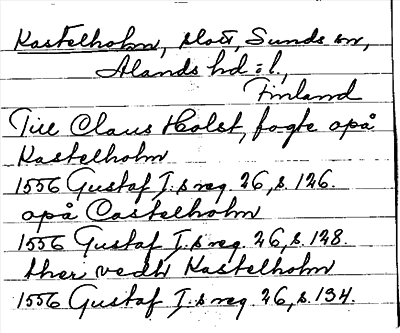 Kastelholm, slott, Sunds sn,
Ålands hd o l.,
Finland
Till Claus Holst, fogte opå
Kastelholm
1556 Gustaf I.s reg. 26, s. 126.
opå Castelholm
1556 Gustaf I.s reg. 26, s. 128.
ther vedh Kastelholm
1556 Gustaf I.s reg. 26, s. 134.